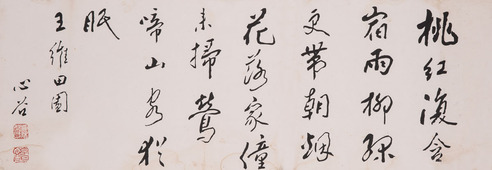 桃紅復含
宿雨柳綠
更帶朝烟
花落家僮
未掃鶯
啼山客猶
眠
王維田園
心谷